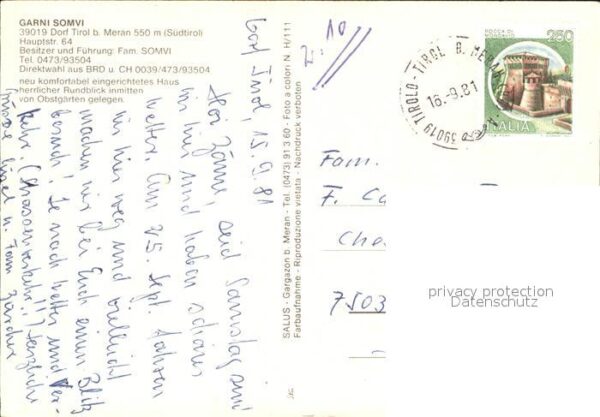 GARNI SOMVI
39019 Dorf Tirol b. Meran 550 m (Südtirol)
Hauptstr. 64
Besitzer und Führung: Fam. SOMVI
Tel. 0473/93504
Direktwahl aus BRD u. CH 0039/473/93504
neu komfortabel eingerichtetes Haus
herrlicher Rundblick inmitten
von Obstgärten gelegen.
Dorf Tirol, 15.9.81
Hoi Zäme, seid Samstag sind
wir hier und haben schönes
Wetter. Am 25. Sept. fahren
wir hier weg und vielleicht
machen wir bei Euch einen Blitz
besuch! Je nach Wetter und Ver-
kehr. (Strassenverkehr!!) Herzliche
Grüsse u. Fam. Zürcher
SALUS - Gargazon b. Meran - Tel. (0473) 91 3 60 - Foto a colori N. H/111
Farbaufnahme - Riproduzione vietata - Nachdruck verboten
39019 TIROLO - TIROL B. MERAN
16.-9.81
ROCCA DI
250
ITALIA
Fam.
F. Ca
Che
7503
privacy protection
Datenschutz